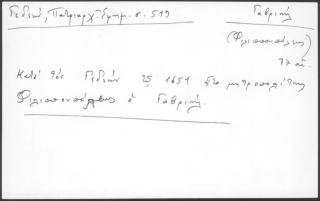 Γεδεών, Πατριαρχ. Εφημ. σ. 519
Γαβριήλ
(Φιλιππουπόλεως)
17 αἰ.
Κατά τόν Γεδεών τῷ 1651 ἦτο μητροπολίτης
Φιλιππουπόλεως ὁ Γαβριήλ.